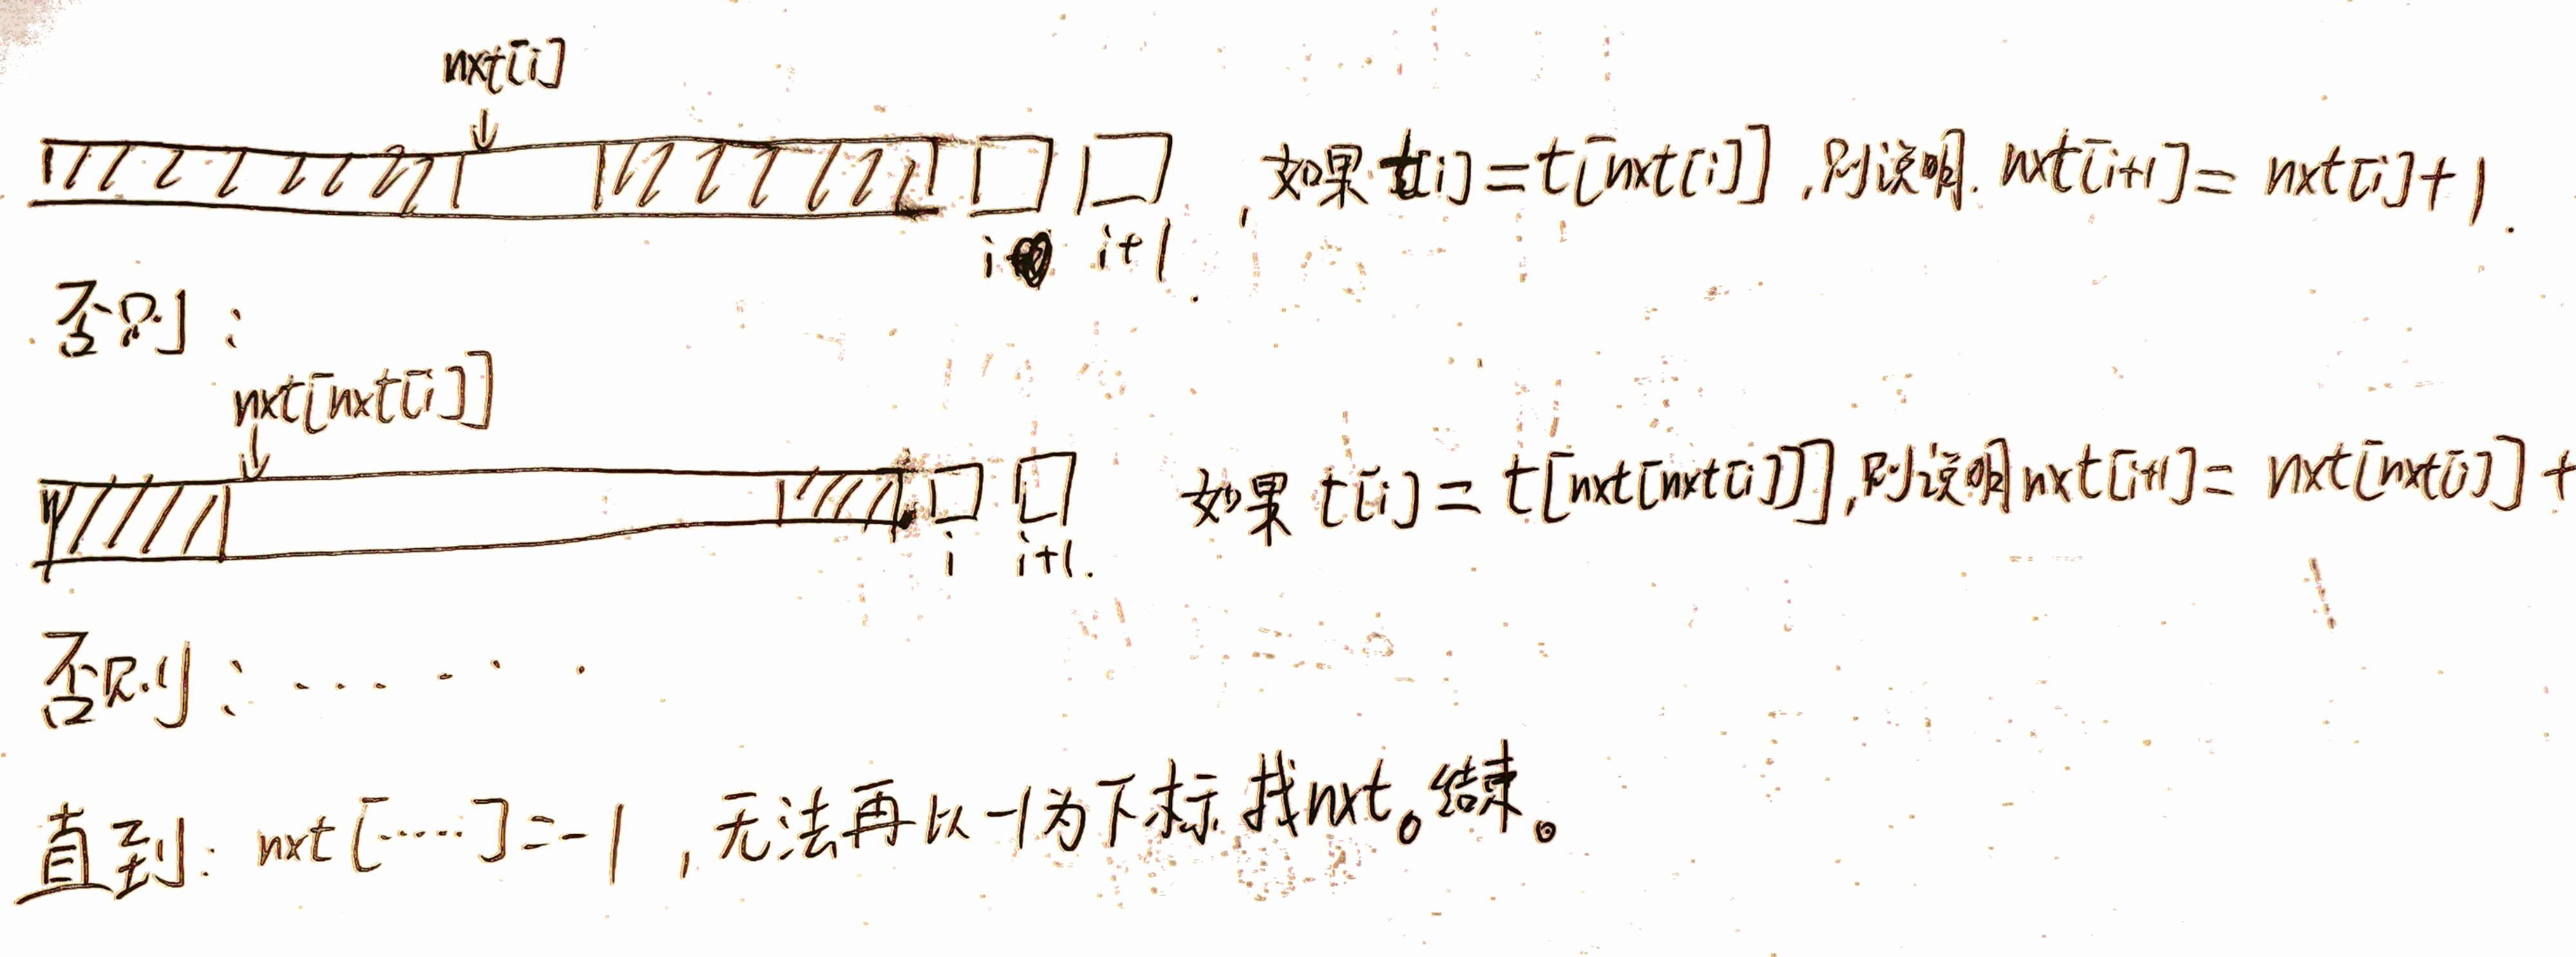 nxt[i]
，如果 t[i]=t[nxt[i]]，则说明. nxt[i+1]= nxt[i]+1.
i i+1.
否则：
nxt[nxt[i]]
如果 t[i]= t[nxt[nxt[i]]],则说明nxt[i+1]= nxt[nxt[i]]+
i i+1.
1
否则：......
直到：nxt[……]=-1，无法再以-1为下标找nxt。结束。